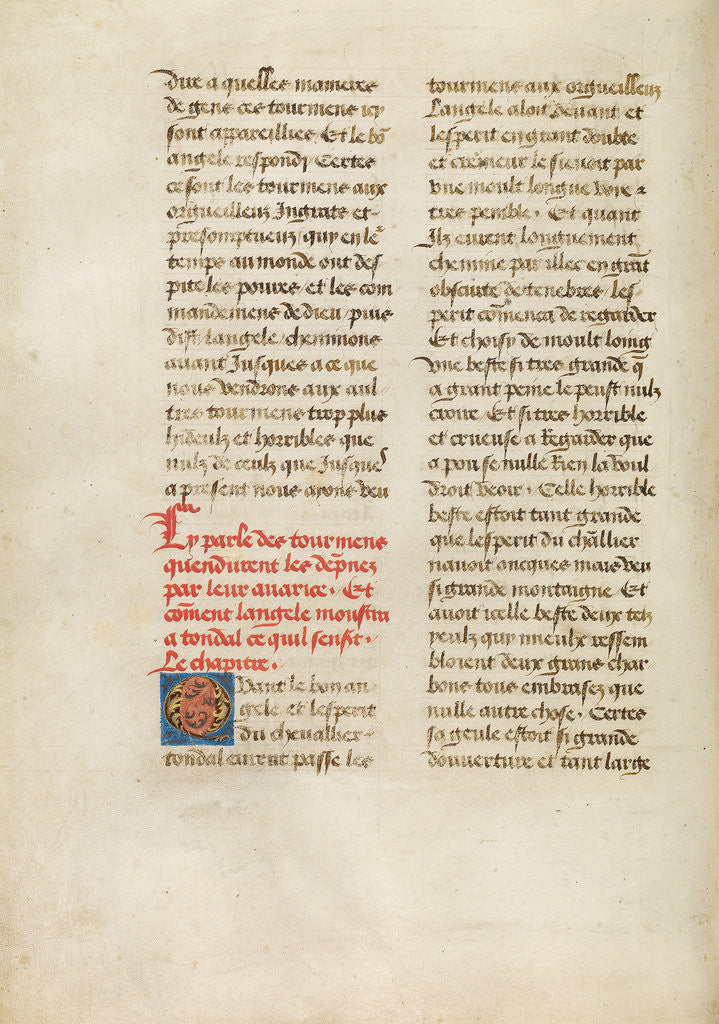 dire a quelles manieres
de gens ces tourmens icy
sont appareillies. Et le bō
angele respondy Certes
ce sont les tourmens aux
orgueilleux Ingrats et
presomptueux / quy en le᷑
temps au monde ont des
pite les poures / et les com
mandemens de dieu / puis
dist langele / cheminons
auant Jusques a ce que
nous vendrons aux aul
tres tourmens trop plus
hideulx et horribles que
nulz de ceulz que Jusques
a present nous ayons veu
Cy parle des tourmens
quendurent les dp̄nez
par leur auarice. Et
com̄ent langele moustra
a tondal ce quil senst.
Le chapitre.
Quant le bon an
gele et lesperit
du cheuallier
tondal eurent passe les
tourmens aux orgueilleux
Langele aloit deuant et
lesperit en grant doubte
et cremeur le sieuoit par
vne moult longue voye et
tres penible. Et quant
Ilz eurent longuement
chemine par illec en grāt
obscurte de tenebres / les
perit com̄enca de regarder
Et choisy de moult loing
vne beste si tres grande q̄
a grant peine le peust nulz
croire / Et si tres horrible
et crueuse a Regarder que
a pou se nulle Rien la voul
droit veoir. Celle horrible
beste estoit tant grande
que lesperit du chl̄lier
nauoit oncques mais veu
si grande montaigne Et
auoit icelle beste deux telz
yeulz quy mieulx ressem
bloient deux grans char
bons tous embrasez que
nulle autre chose. Certes
sa geule estoit si grande
douuerture et tant large